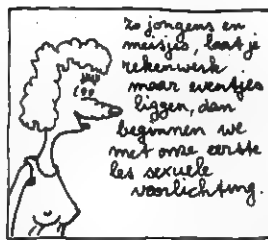 Zo jongens en
meisjes, laat je
rekenwerk
maar eventjes
liggen, dan
beginnen we
met onze eerste
les sexuele
voorlichting.